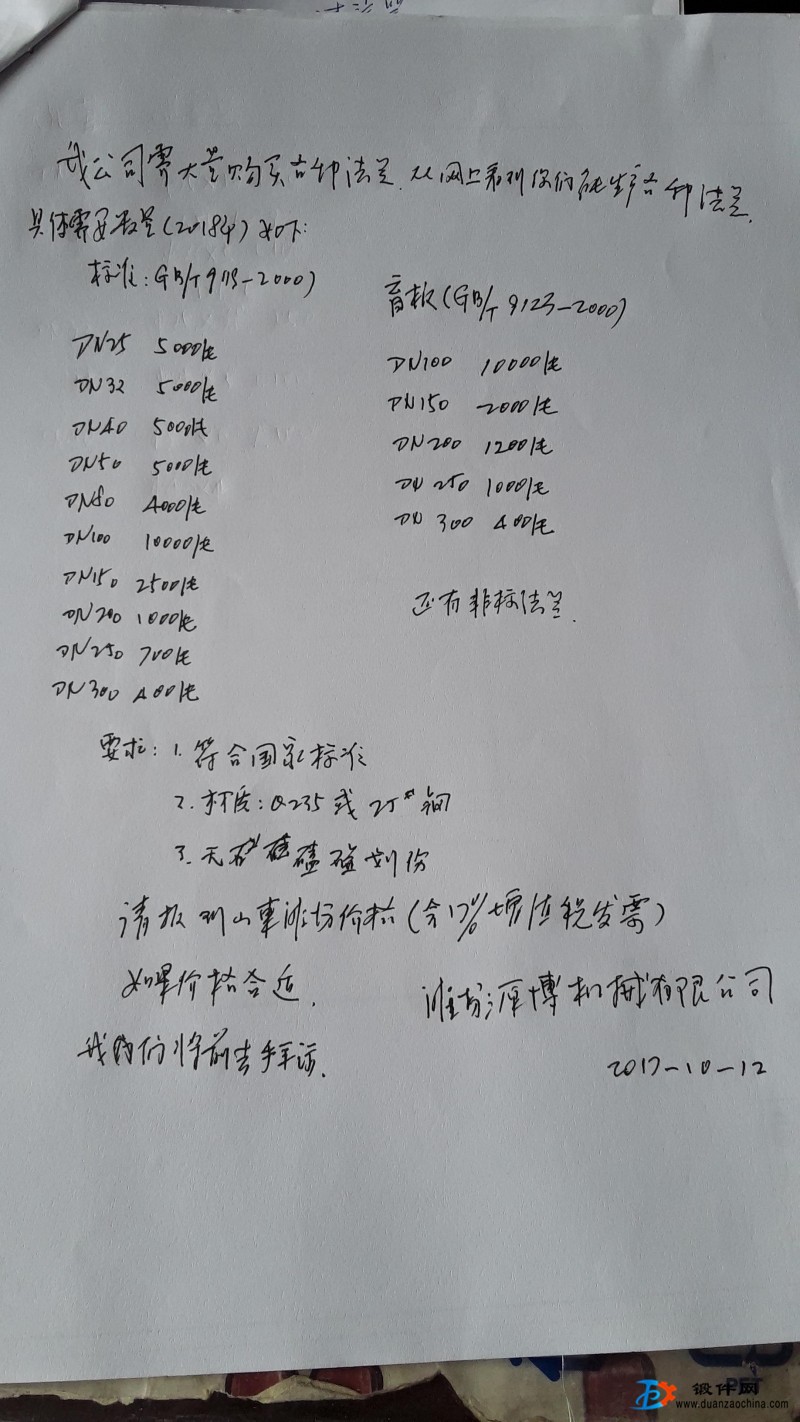 我公司需大量购买各种法兰.从网上看到你们能生产各种法兰.
具体需要数量(2018年)如下:
标准:GB/T9115-2000)
盲板(GB/T 9123-2000)
DN25 5000件
DN32 5000件
DN40 5000件
DN50 5000件
DN80 4000件
DN100 10000件
DN150 2500件
DN200 1000件
DN250 700件
DN300 400件
DN100 10000件
DN150 2000件
DN200 1200件
DN250 1000件
DN300 400件
还有非标法兰.
要求:1.符合国家标准
2.材质:Q235或25#钢
3.无磕碰划伤
请报到山东潍坊价格(含17%增值税发票)
如果价格合适.
我们将前去拜访.
潍坊 博机械有限公司
2017-10-12
PET
锻件网
www.duanzaochina.com